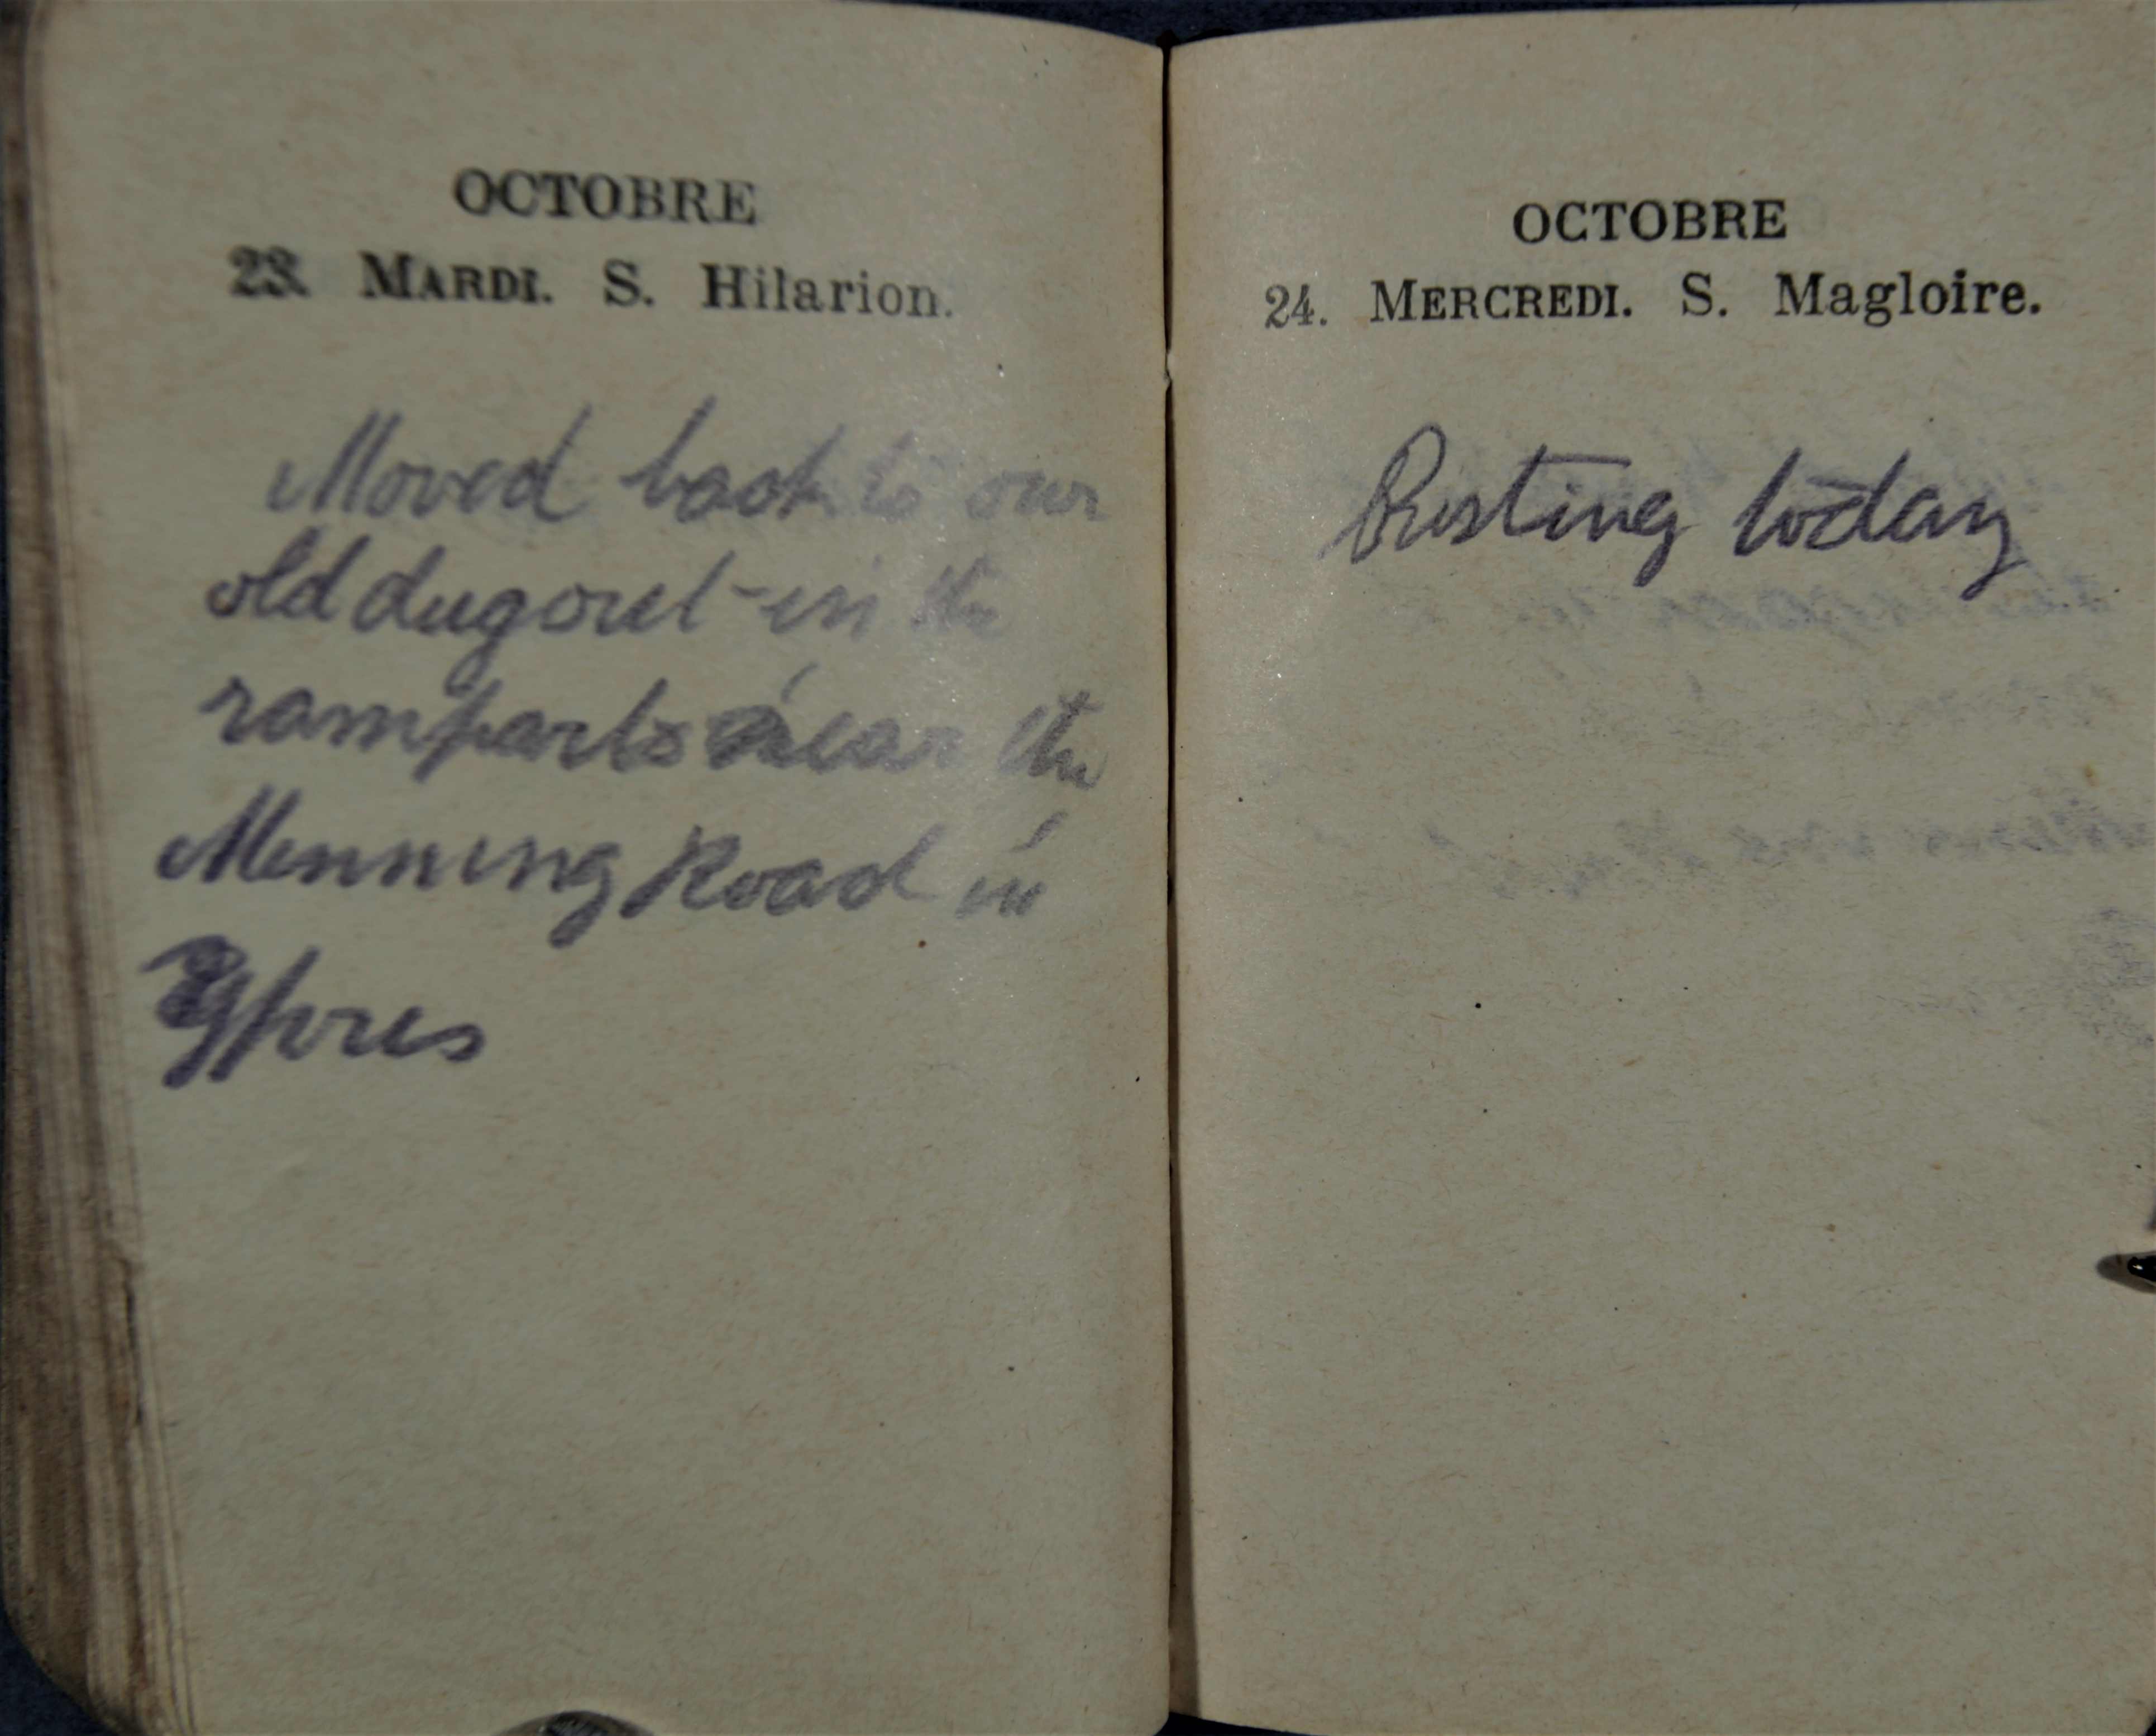 OCTOBRE
23. MARDI. S. Hilarion.
Moved back to our
old dugout in the
ramparts near the
Menning Road in
Ypres
OCTOBRE
24. MERCREDI. S. Magloire.
Resting today